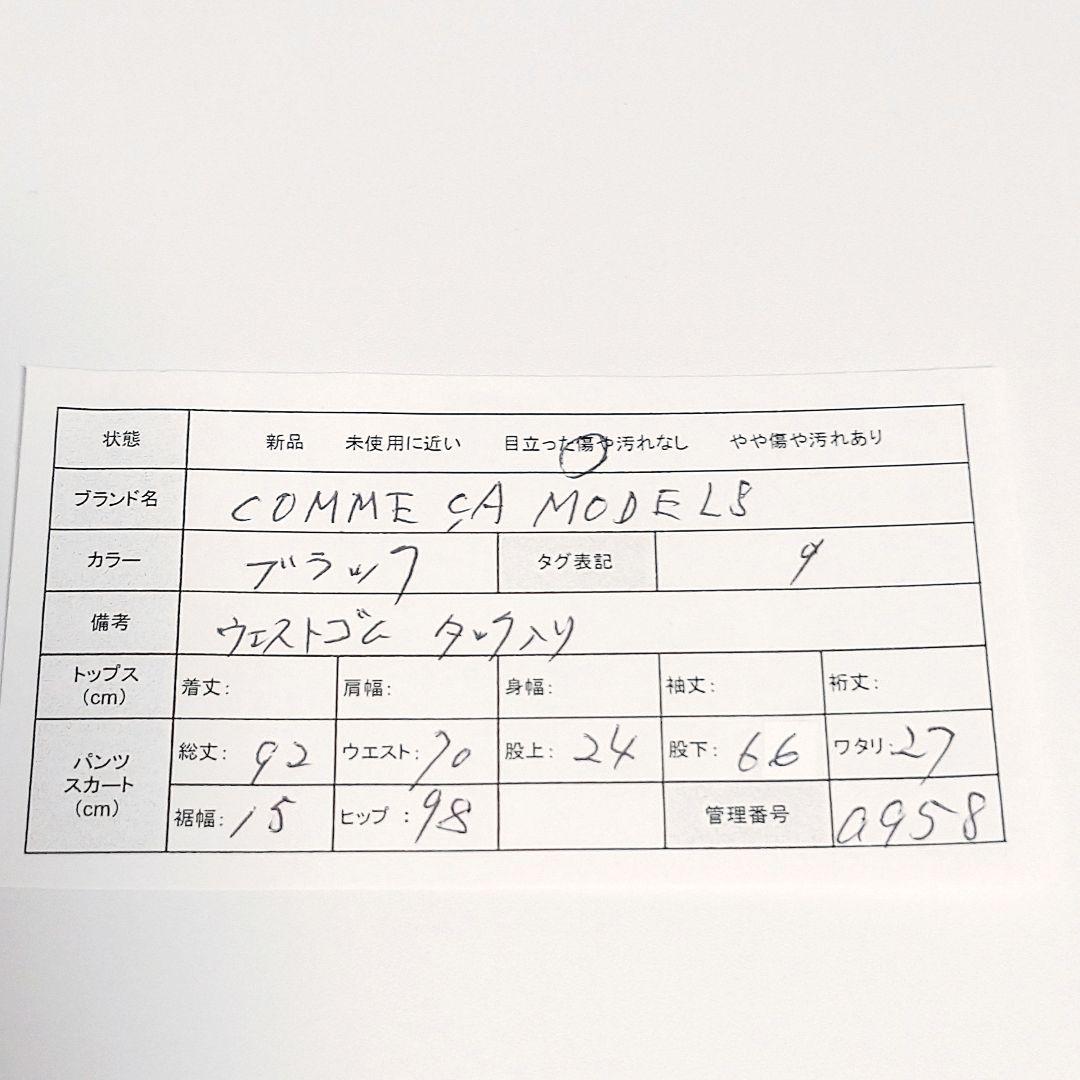 状態 新品 未使用に近い 目立った傷や汚れなし やや傷や汚れあり
ブランド名 COMME ÇA MODELS
カラー ブラック タグ表記 9
備考 ウエストゴム タック入り
トップス (cm) 着丈: 肩幅: 身幅: 袖丈: 裄丈:
パンツ スカート (cm) 総丈: 92 ウエスト: 70 股上: 24 股下: 66 ワタリ: 27
裾幅: 15 ヒップ : 98 管理番号 a958